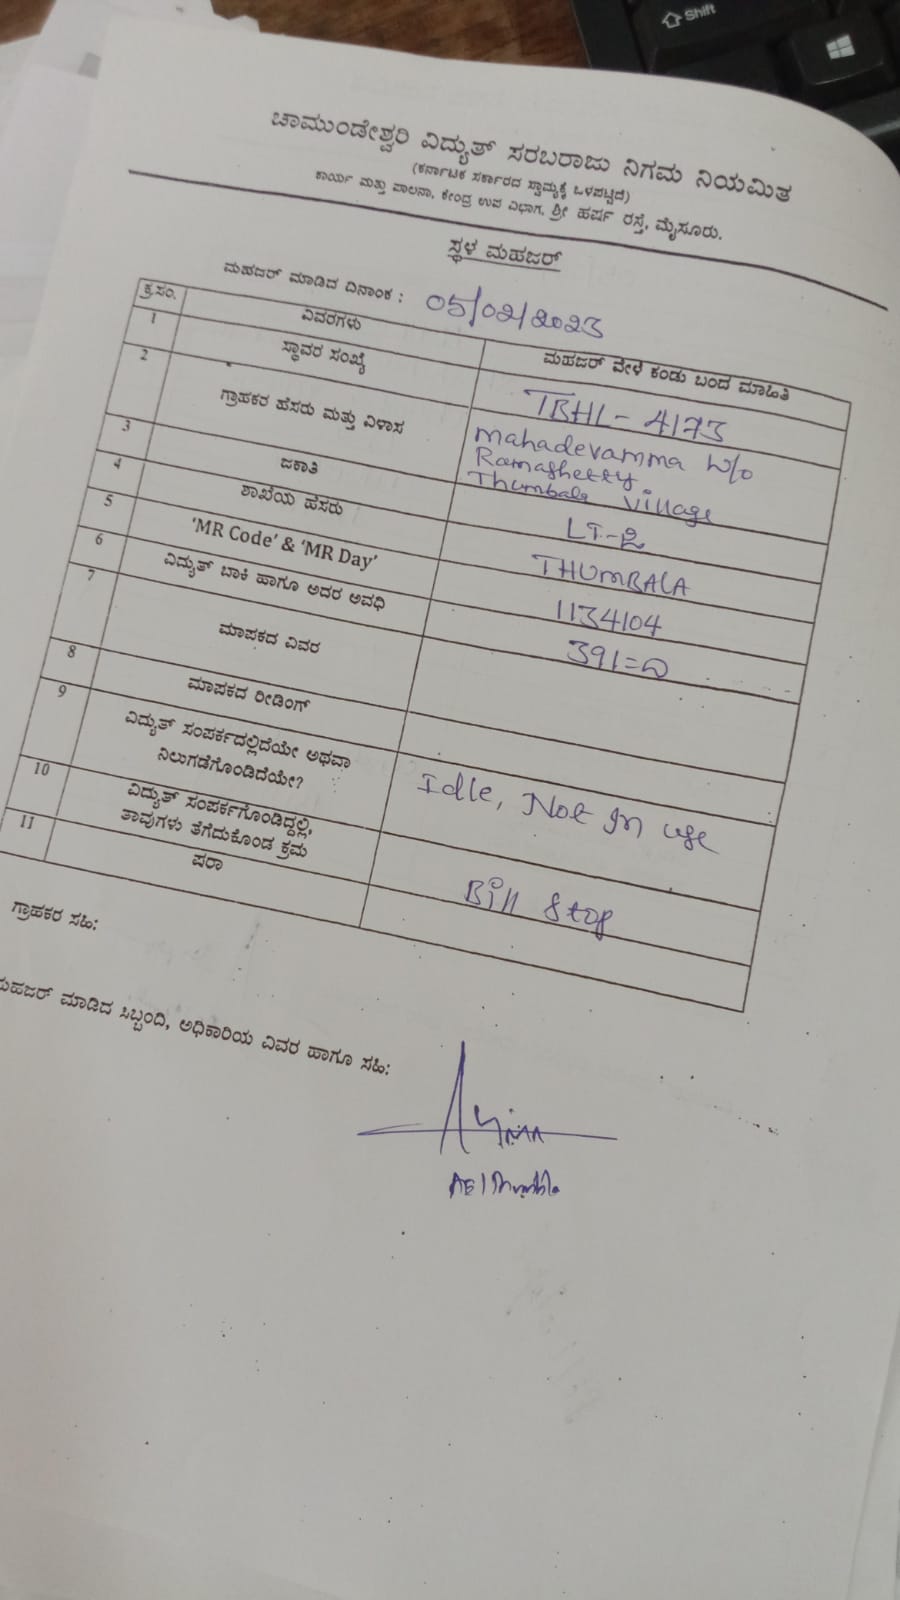 Shift
ಚಾಮುಂಡೇಶ್ವರಿ ವಿದ್ಯುತ್ ಸರಬರಾಜು ನಿಗಮ ನಿಯಮಿತ
(ಕರ್ನಾಟಕ ಸರ್ಕಾರದ ಸ್ವಾಮ್ಯಕ್ಕೆ ಒಳಪಟ್ಟಿದೆ)
ಕಾರ್ಯ ಮತ್ತು ಪಾಲನಾ, ಕೇಂದ್ರ ಉಪ ವಿಭಾಗ, ಶ್ರೀ ಹರ್ಷ ರಸ್ತೆ, ಮೈಸೂರು.
ಸ್ಥಳ ಮಹಜರ್
ಮಹಜರ್ ಮಾಡಿದ ದಿನಾಂಕ : 05/02/2023
ಕ್ರ.ಸಂ. ವಿವರಗಳು ಮಹಜರ್ ವೇಳೆ ಕಂಡು ಬಂದ ಮಾಹಿತಿ
1 ಸ್ಥಾವರ ಸಂಖ್ಯೆ TBHL-4173
2 ಗ್ರಾಹಕರ ಹೆಸರು ಮತ್ತು ವಿಳಾಸ Mahadevamma w/o
Ramashetty
Thumbala Village
3 ಜಕಾತಿ LT-2
4 ಶಾಖೆಯ ಹೆಸರು THUMBALA
5 'MR Code' & 'MR Day' 1134104
6 ವಿದ್ಯುತ್ ಬಾಕಿ ಹಾಗೂ ಅದರ ಅವಧಿ 391=0
7 ಮಾಪಕದ ವಿವರ
8 ಮಾಪಕದ ರೀಡಿಂಗ್
9 ವಿದ್ಯುತ್ ಸಂಪರ್ಕದಲ್ಲಿದೆಯೇ ಅಥವಾ
ನಿಲುಗಡೆಗೊಂಡಿದೆಯೇ? Idle, Not In use
10 ವಿದ್ಯುತ್ ಸಂಪರ್ಕಗೊಂಡಿದ್ದಲ್ಲಿ,
ತಾವುಗಳು ತೆಗೆದುಕೊಂಡ ಕ್ರಮ Bill Stop
11 ಷರಾ
ಗ್ರಾಹಕರ ಸಹಿ:
ಮಹಜರ್ ಮಾಡಿದ ಸಿಬ್ಬಂದಿ, ಅಧಿಕಾರಿಯ ವಿವರ ಹಾಗೂ ಸಹಿ: